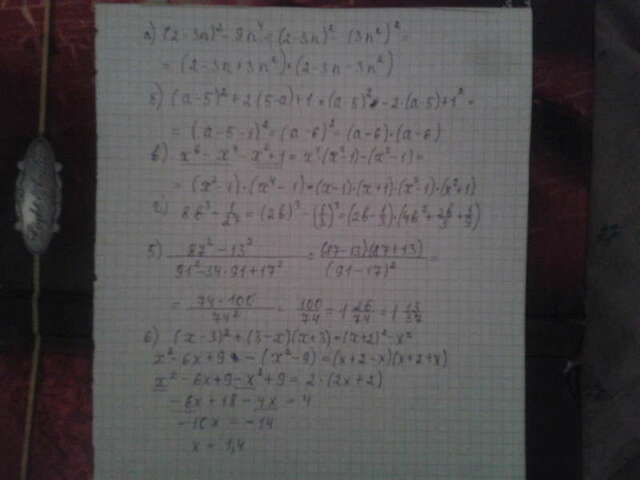 а) (2-3n)² - 9n⁴ = (2-3n)² - (3n²)² =
= (2-3n+3n²)·(2-3n-3n²)
б) (a-5)²+2(5-a)+1 = (a-5)² - 2·(a-5)+1² =
= (a-5-1)² = (a-6)² = (a-6)·(a-6)
в) x⁶ - x⁴ - x²+1 = x⁴(x²-1)-(x²-1) =
= (x²-1)·(x⁴-1) = (x-1)·(x+1)·(x²-1)·(x²+1)
г) 8b³ - 1/27 = (2b)³ - (1/3)³ = (2b-1/3)·(4b²+2b/3+1/9)
5) (87² - 13²)/(91²-34·91+17²) = (87-13)(87+13)/(91-17)² =
= 74·100/74² = 100/74 = 1 26/74 = 1 13/37
6) (x-3)²+(3-x)(x+3) = (x+2)² - x²
x²-6x+9 - (x²-9) = (x+2-x)(x+2+x)
x² - 6x+9-x²+9 = 2·(2x+2)
-6x+18-4x = 4
-10x = -14
x = 1,4